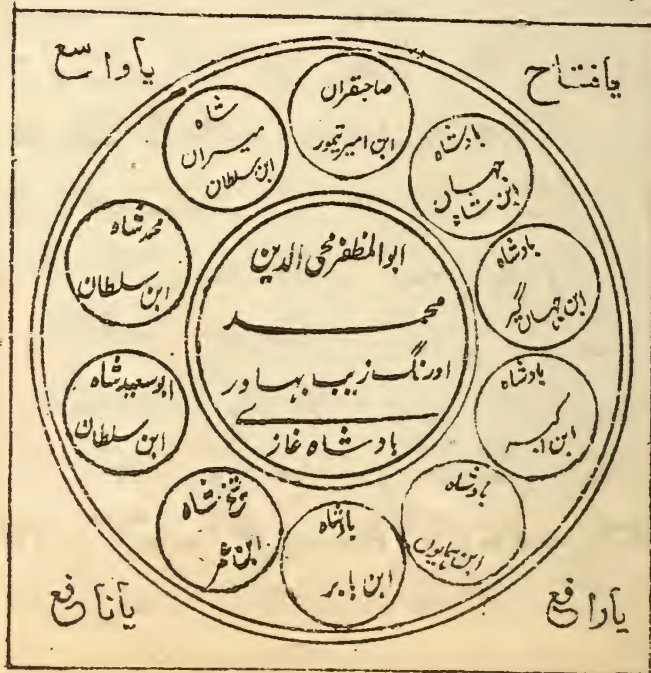 یافتاح
یاواسع
صاحبقران
ابن امیر تیمور
بادشاہ
جہاں
ابن شاہ
بادشاہ
ابن جہاں گیر
بادشاہ
ابن اکبر
بادشاہ
ابن ہمایوں
بادشاہ
ابن بابر
شیخ شاہ
ابن عمر
ابو سعید شاہ
ابن سلطان
محمد شاہ
ابن سلطان
شاہ
میران
ابن سلطان
ابوالمظفر محی الدین
محمد
اورنگ زیب بہادر
بادشاہ غازے
یارافع
یانافع